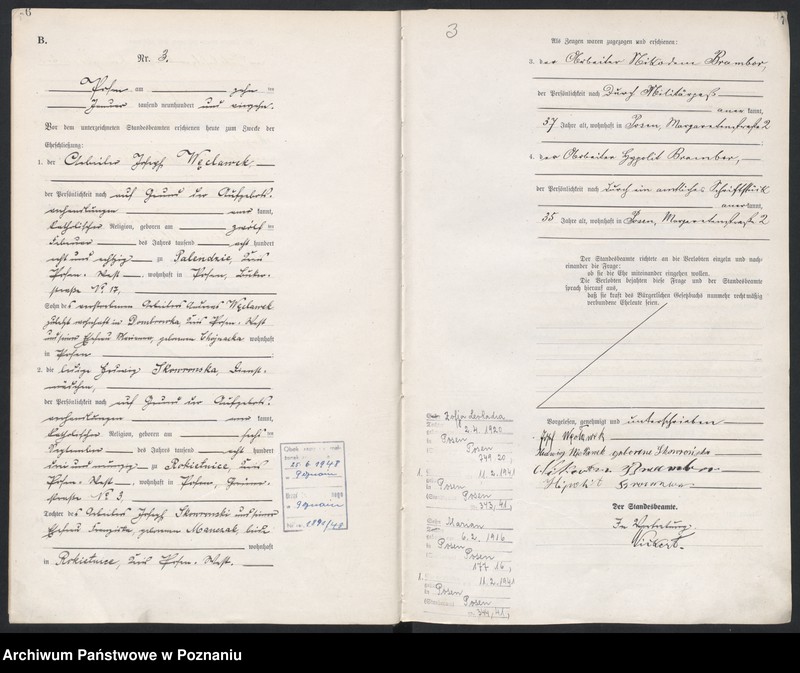 B.
Nr. 3.
Posen am zehn ten
Januar tausend neunhundert und vierzehn.
Vor dem unterzeichneten Standesbeamten erschienen heute zum Zwecke der
Eheschließung:
1. der Arbeiter Joseph Węcławek,
der Persönlichkeit nach auf Grund der Aufgebots-
verhandlungen kannt,
katholischer Religion, geboren am zwölf ten
Februar des Jahres tausend acht hundert
acht und achtzig zu Palendzie, Kreis
Posen-West, wohnhaft in Posen,
straße No 17,
Sohn des verstorbenen Arbeiters Węcławek
zuletzt wohnhaft in Dombrowka, Kreis Posen-West
und seiner Ehefrau geborenen wohnhaft
in Posen
2. die ledige Hedwig Skowronska, Dienst-
mädchen,
der Persönlichkeit nach auf Grund der Aufgebots-
verhandlungen kannt,
katholischer Religion, geboren am sechs ten
September des Jahres tausend acht hundert
drei und neunzig zu Rokietnice, Kreis
Posen-West, wohnhaft in Posen,
straße No 3,
Tochter des Arbeiters Joseph Skowronski und seiner
Ehefrau Franziska, geborenen beide
wohnhaft
in Rokietnice, Kreis Posen-West.
25.6.1948
Poznań
Poznań
1890/48
3
Als Zeugen waren zugezogen und erschienen:
3. der Arbeiter Nikodem Brambor,
der Persönlichkeit nach durch Militärpaß
aner kannt,
37 Jahre alt, wohnhaft in Posen, Margaretenstraße 2
4. der Arbeiter Hypolit Brambor,
der Persönlichkeit nach durch ein amtliches Schriftstück
aner kannt,
35 Jahre alt, wohnhaft in Posen, Margaretenstraße 2
Der Standesbeamte richtete an die Verlobten einzeln und nach-
einander die Frage:
ob sie die Ehe miteinander eingehen wollen.
Die Verlobten bejahten diese Frage und der Standesbeamte
sprach hierauf aus,
daß sie kraft des Bürgerlichen Gesetzbuchs nunmehr rechtmäßig
verbundene Eheleute seien.
Vorgelesen, genehmigt und unterschrieben
Józef Węcławek
Hedwig Węcławek geborene Skowrońska
Nikodem Brambor
Hipolit Brambor
Der Standesbeamte.
In Vertretung.
Zofja Leokadia
2.4.1920
Posen
Posen
379 20
11.2.1941
Posen
Posen
343/41
Marian
6.2.1916
Posen
Posen
177 16
11.2.1941
Posen
Posen
344/41
Archiwum Państwowe w Poznaniu